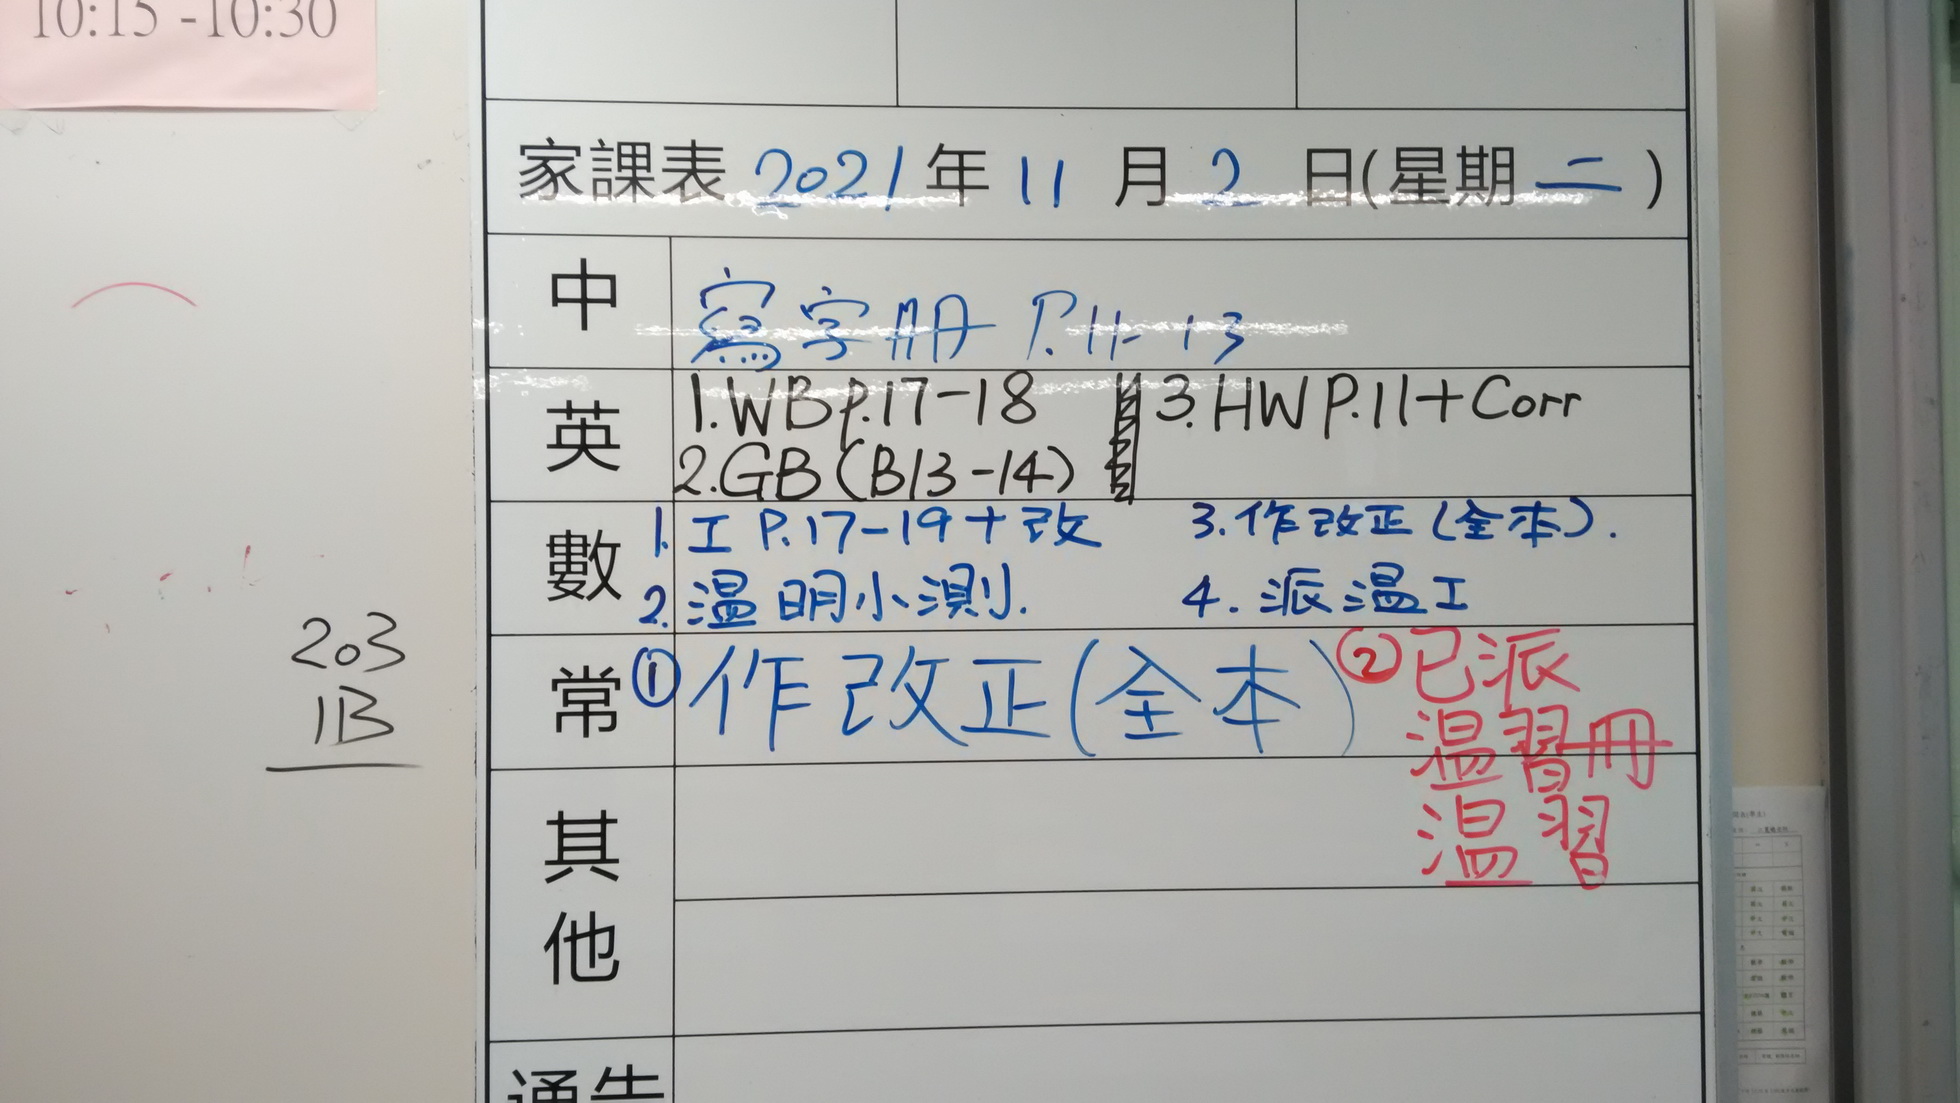 10:15 -10:30
家課表 2021 年 11 月 2 日(星期 二 )
中
寫字冊 P.11-13
英
1.WB p.17-18
2.GB (B13-14)
3.HW P.11+Corr
數
1. 工 P.17-19 + 改
2. 溫明小測.
3.作改正(全本).
4. 派溫工
常
① 作改正(全本)
② 已派
溫習冊
溫習
其他
通告
203
1B